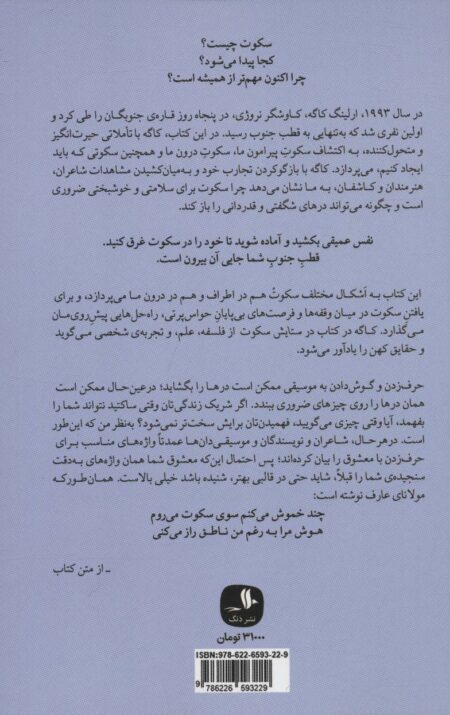 سکوت چیست؟
کجا پیدا می‌شود؟
چرا اکنون مهم‌تر از همیشه است؟
در سال ۱۹۹۳، ارلینگ کاگه، کاوشگر نروژی، در پنجاه روز قاره‌ی جنوبگان را طی کرد و
اولین نفری شد که به‌تنهایی به قطب جنوب رسید. در این کتاب، کاگه با تأملاتی حیرت‌انگیز
و متحول‌کننده، به اکتشاف سکوتِ پیرامون ما، سکوتِ درون ما و همچنین سکوتی که باید
ایجاد کنیم، می‌پردازد. کاگه با بازگوکردن تجارب خود و به‌میان‌کشیدن مشاهدات شاعران،
هنرمندان و کاشفان، به ما نشان می‌دهد چرا سکوت برای سلامتی و خوشبختی ضروری
است و چگونه می‌تواند درهای شگفتی و قدردانی را باز کند.
نفس عمیقی بکشید و آماده شوید تا خود را در سکوت غرق کنید.
قطبِ جنوبِ شما جایی آن بیرون است.
این کتاب به اَشکال مختلف سکوتْ هم در اطراف و هم در درون ما می‌پردازد، و برای
یافتن سکوت در میان وقفه‌ها و فرصت‌های بی‌پایانِ حواس‌پرتی، راه‌حل‌هایی پیشِ‌روی‌مان
می‌گذارد. کاگه در کتاب در ستایش سکوت از فلسفه، علم، و تجربه‌ی شخصی می‌گوید
و حقایق کهن را یادآور می‌شود.
حرف‌زدن و گوش‌دادن به موسیقی ممکن است درها را بگشاید؛ درعین‌حال ممکن است
همان درها را روی چیزهای ضروری ببندد. اگر شریک زندگی‌تان وقتی ساکتید نتواند شما را
بفهمد، آیا وقتی چیزی می‌گویید، فهمیدن‌تان برایش سخت‌تر نمی‌شود؟ به‌نظر من که این‌طور
است. درهرحال، شاعران و نویسندگان و موسیقی‌دان‌ها عمدتاً واژه‌های مناسب برای
حرف‌زدن با معشوق را بیان کرده‌اند؛ پس احتمال این‌که معشوق شما همان واژه‌های به‌دقت
سنجیده‌ی شما را قبلاً، شاید حتی در قالبی بهتر، شنیده باشد خیلی بالاست. همان‌طورکه
مولانای عارف نوشته است:
چند خموش می‌کنم سوی سکوت می‌روم
هوش مرا به رغم من ناطق راز می‌کنی
ـ از متن کتاب
نشر دنگ
۳۱۰۰۰ تومان
ISBN: 978-622-6593-22-9
9 786226 593229